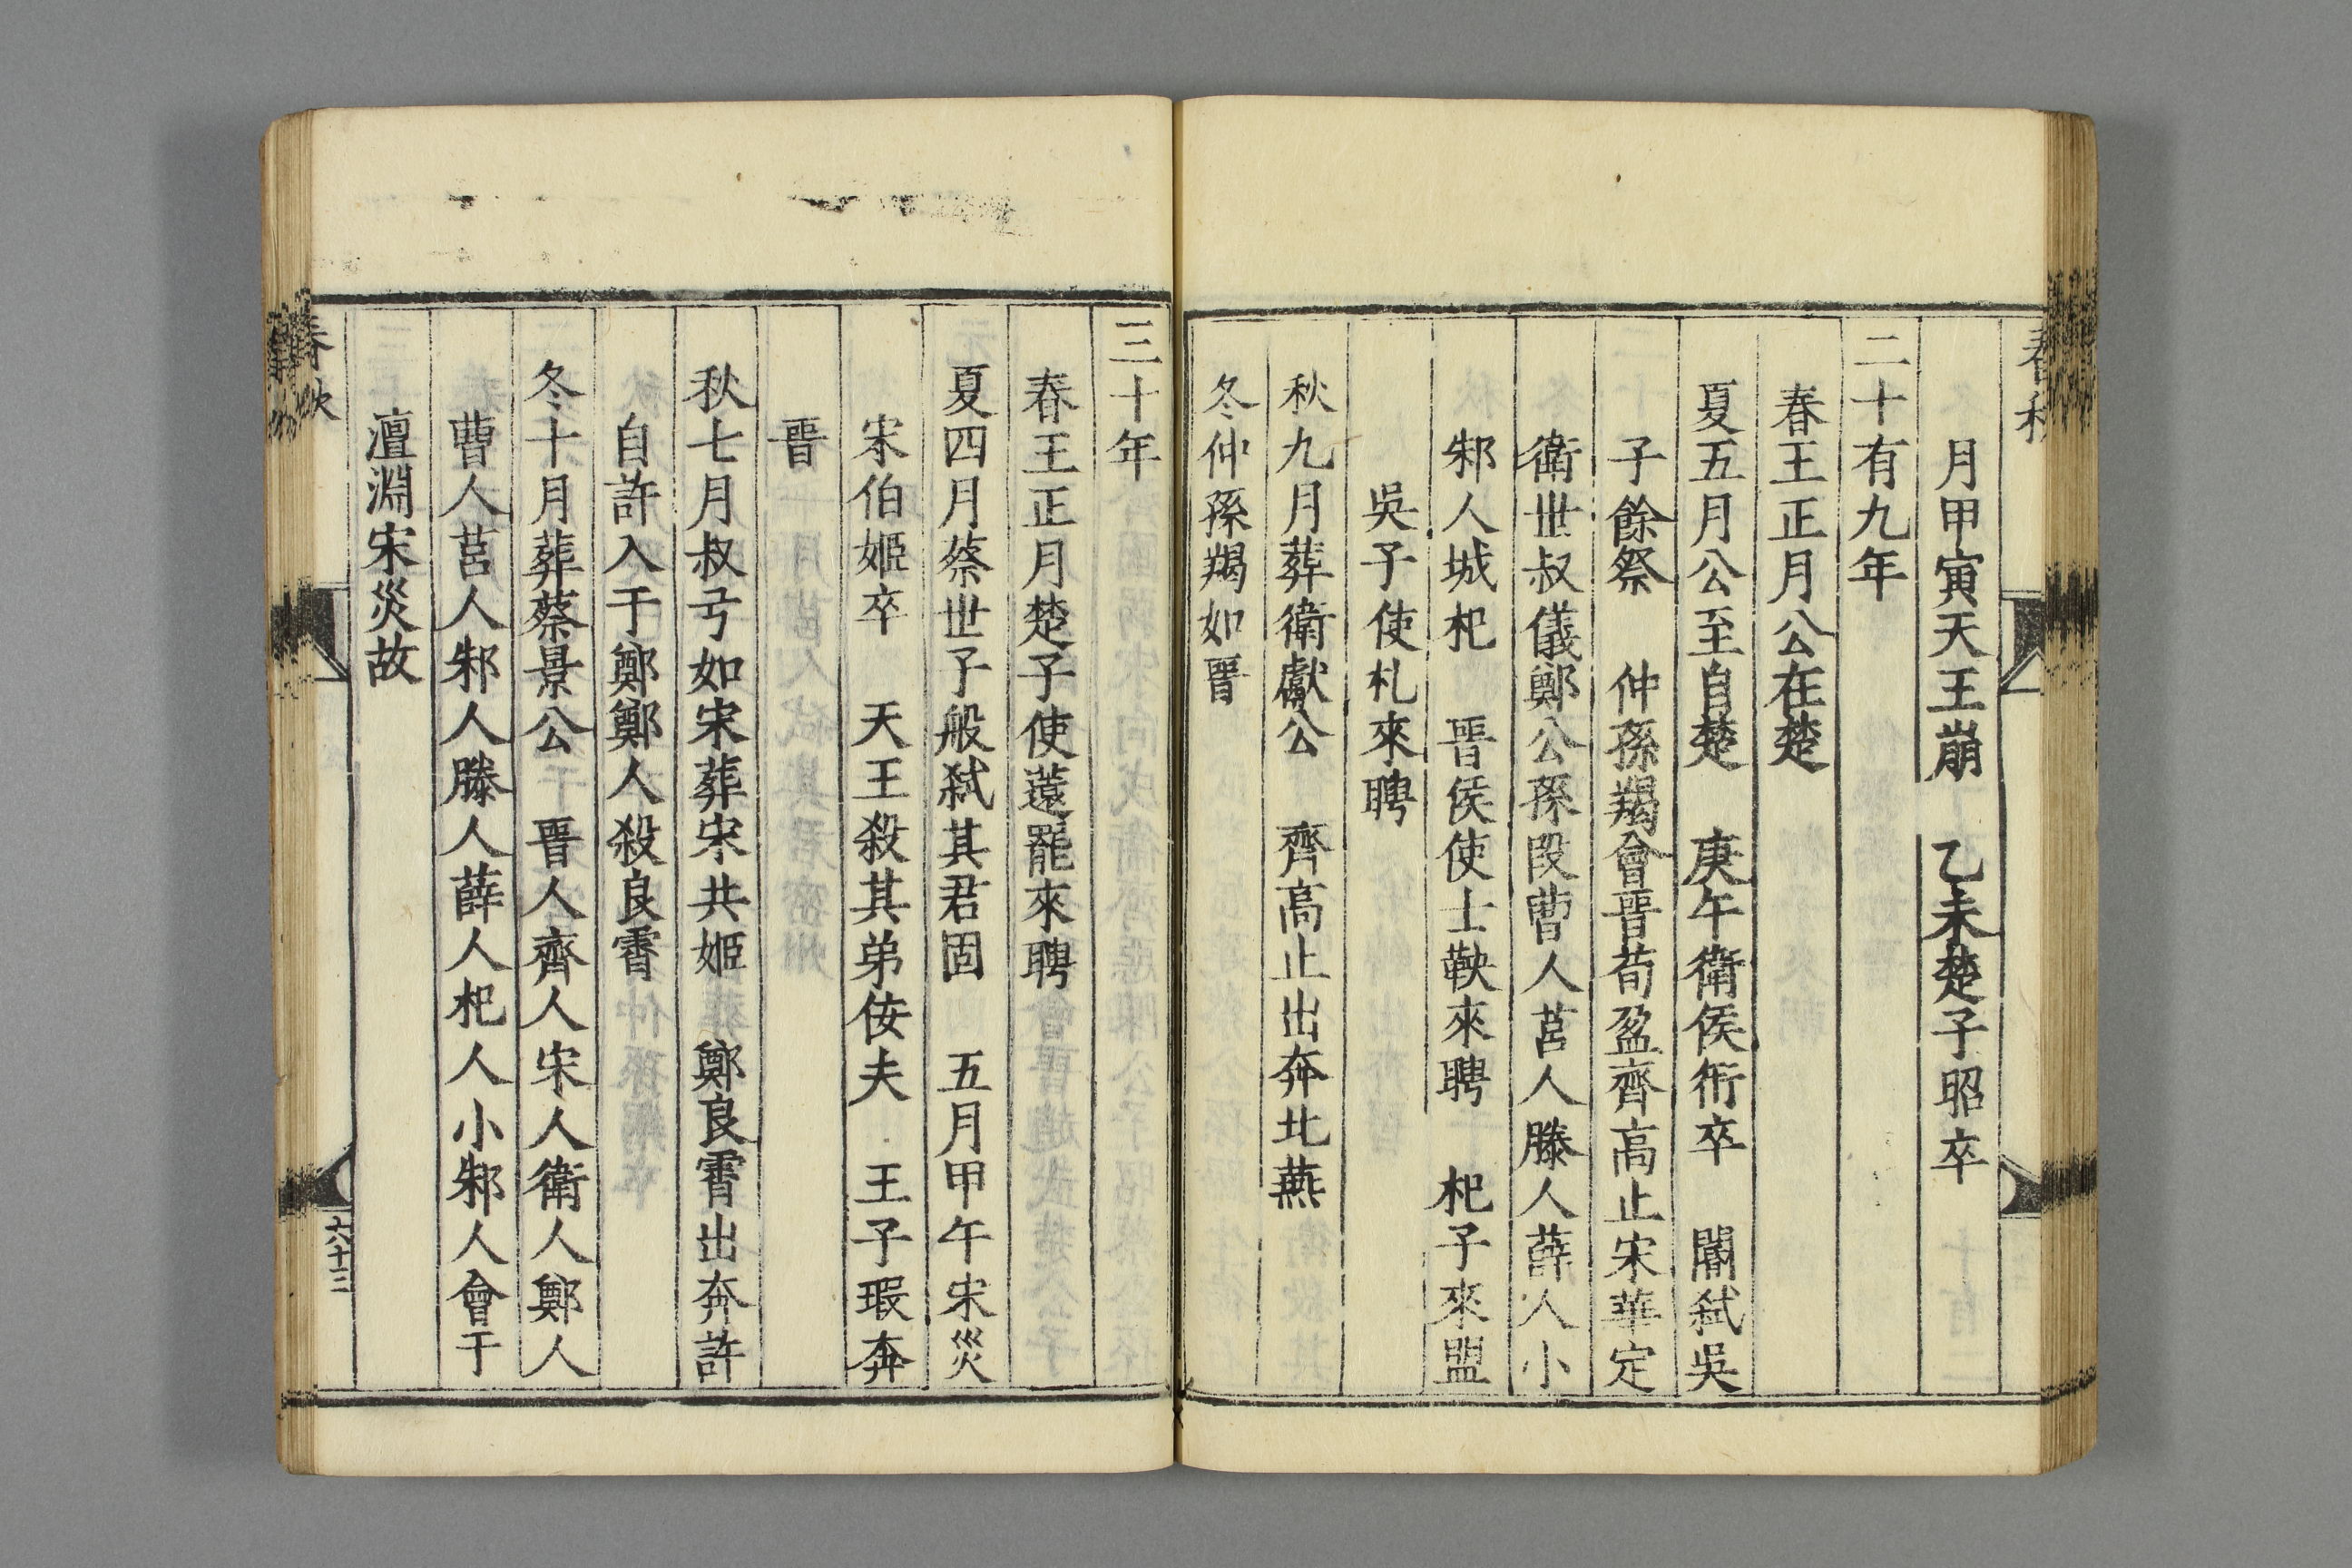 春秋
月甲寅天王崩 乙未楚子昭卒
二十有九年
春王正月公在楚
夏五月公至自楚 庚午衛侯衎卒 閽弑吳
子餘祭 仲孫羯會晉荀盈齊高止宋華定
衛世叔儀鄭公孫段曹人莒人滕人薛人小
邾人城杞 晉侯使士鞅來聘 杞子來盟
吳子使札來聘
秋九月葬衛獻公 齊高止出奔北燕
冬仲孫羯如晉
三十年
春王正月楚子使薳罷來聘
夏四月蔡世子般弑其君固 五月甲午宋災
宋伯姬卒 天王殺其弟佞夫 王子瑕奔
晉
秋七月叔弓如宋葬宋共姬 鄭良霄出奔許
自許入于鄭鄭人殺良霄
冬十月葬蔡景公 晉人齊人宋人衛人鄭人
曹人莒人邾人滕人薛人杞人小邾人會于
澶淵宋災故
春秋
六十三